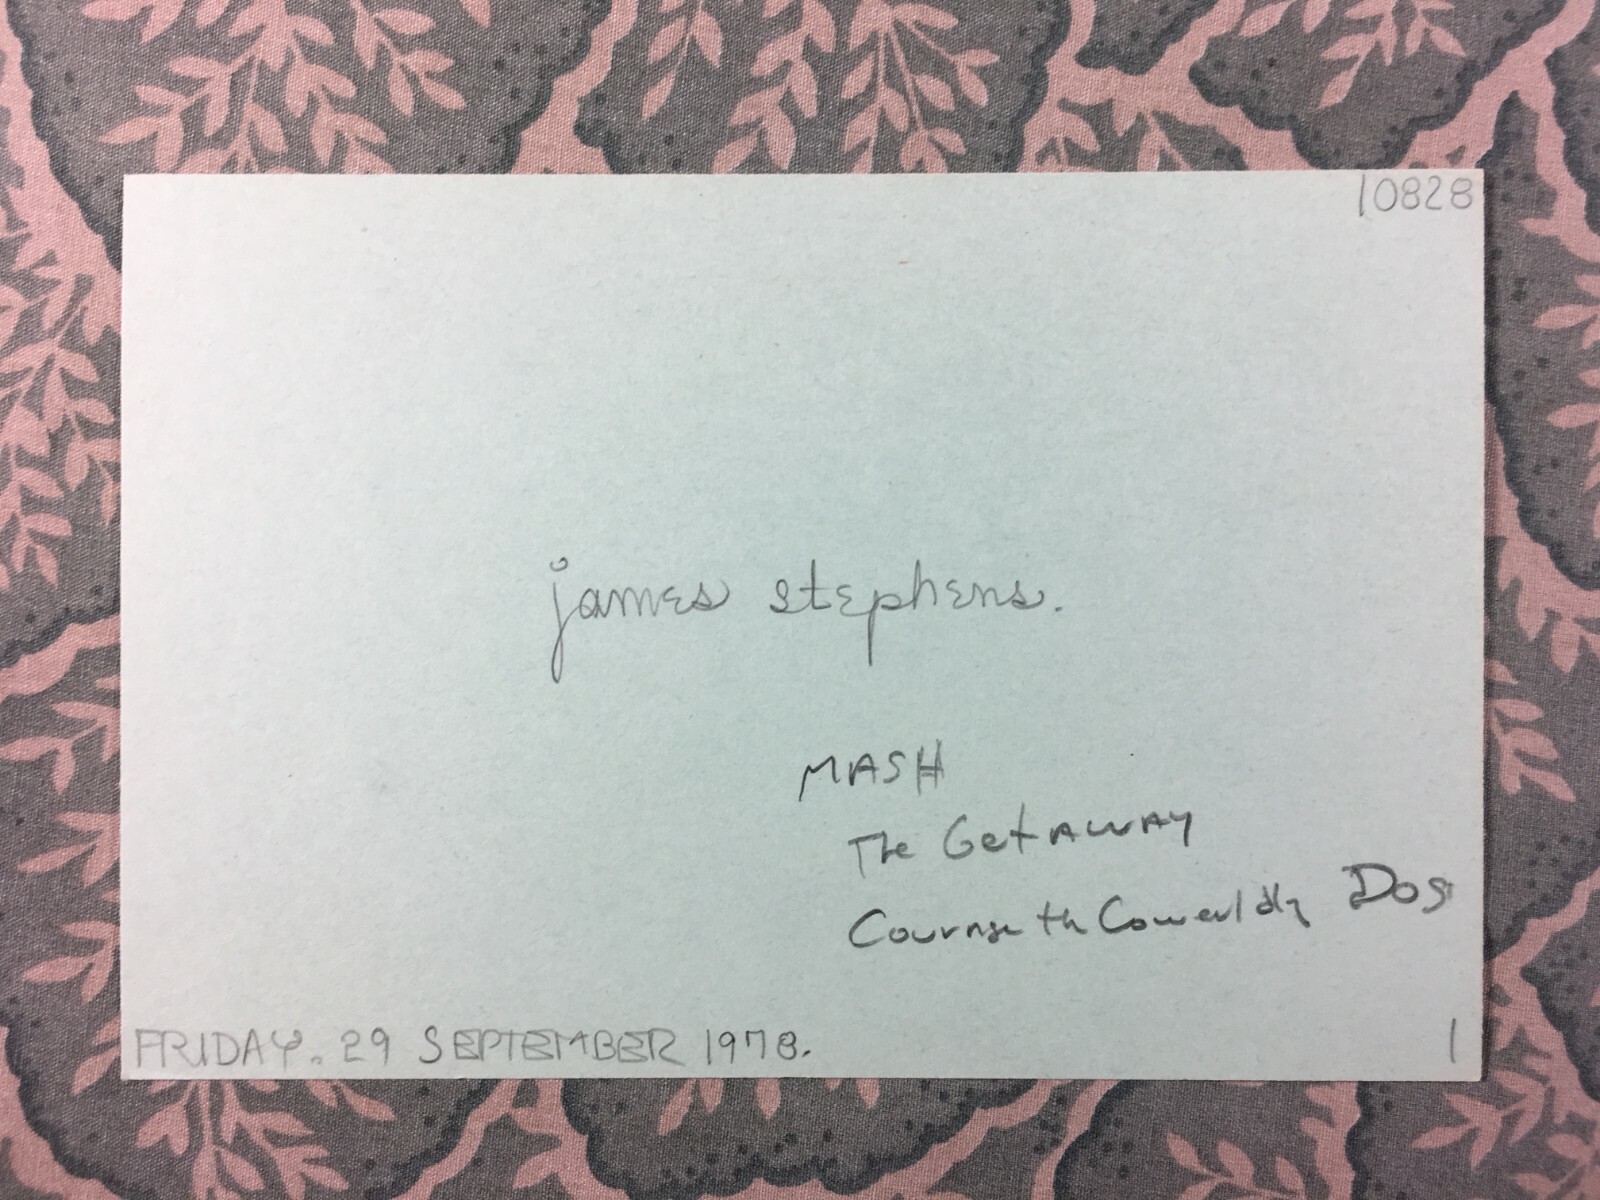 10828
james stephens.
MASH
The Getaway
Courage th Cowerldly Dog
FRIDAY. 29 SEPTEMBER 1978.
1